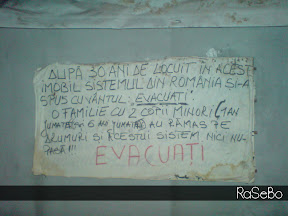 DUPĂ 30 ANI DE LOCUIT IN ACEST
IMOBIL SISTEMUL DIN ROMANIA SI-A
SPUS CUVÂNTUL: EVACUATI
O FAMILIE CU 2 COPII MINORI (1AN
JUMATE SI 6 ANI JUMATE) AU RĂMAS PE
DRUMURI SI ACESTUI SISTEM NICI NU-I
PASĂ!!!
EVACUAȚI
RaSeBo